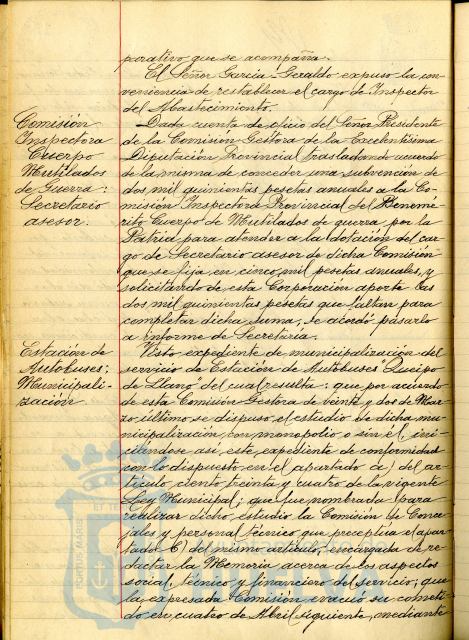 porativo que se acompaña.
El Señor García-Geraldo expuso la con-
veniencia de restablecer el cargo de Inspector
del Abastecimiento.
Comisión
Inspectora
Cuerpo
Mutilados
de Guerra:
Secretario
asesor.
Dada cuenta de oficio del Señor Presidente
de la Comisión Gestora de la Excelentísima
Diputación Provincial trasladando acuerdo
de la misma de conceder una subvención de
dos mil quinientas pesetas anuales a la Co-
misión Inspectora Provincial del Benemé-
rito Cuerpo de Mutilados de guerra por la
Patria para atender a la dotación del car-
go de Secretario asesor de dicha Comisión
que se fija en cinco mil pesetas anuales, y
solicitando de esta Corporación aporte las
dos mil quinientas pesetas que faltan para
completar dicha suma, se acordó pasarlo
a informe de Secretaría.
Estación de
Autobuses:
Municipali-
zación.
Visto expediente de municipalización del
servicio de Estación de Autobuses Queipo
de Llano del cual resulta: que por acuerdo
de esta Comisión Gestora de veinte y dos de Mar-
zo último se dispuso el estudio de dicha mu-
nicipalización, con monopolio o sin él, ini-
ciándose así este expediente de conformidad
con lo dispuesto en el apartado a) del ar-
tículo ciento treinta y cuatro de la vigente
Ley Municipal; que fue nombrada para
realizar dicho estudio la Comisión de Conce-
jales y personal técnico que preceptúa el apar-
tado b) del mismo artículo, encargada de re-
dactar la Memoria acerca de los aspectos
social, técnico y financiero del servicio; que
la expresada Comisión evacuó su cometi-
do en cuatro de Abril siguiente, mediante
PORTUS MARIS